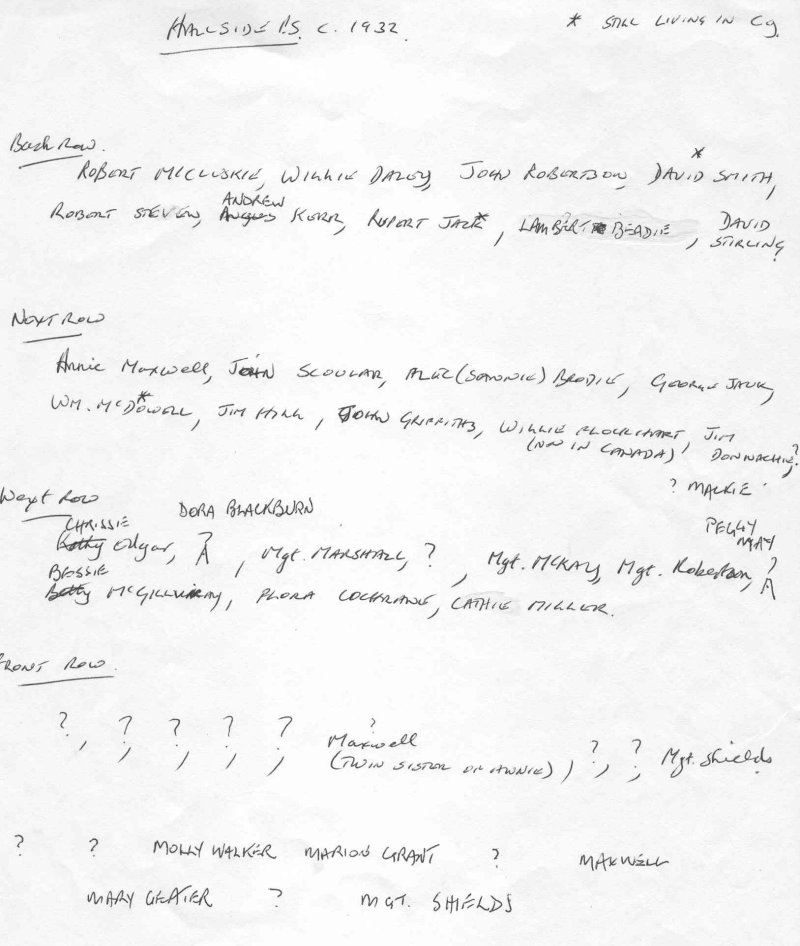 HALLSIDE P.S. C. 1932.
* STILL LIVING IN Cg.
Back Row.
ROBERT MCCLUSKIE, WILLIE DALEY, JOHN ROBERTSON, DAVID* SMITH,
ROBERT STEVEN, ANDREW KERR, RUPERT JACK*, LAMBERT BEADIE, DAVID STIRLING
NEXT ROW
Annie Maxwell, JOHN SCOULAR, ALEC (SAWNIE) BRODIE, GEORGE JACK,
WM. MCDOWELL*, JIM HILL, JOHN GRIFFITHS, WILLIE FLOCKHART, JIM
(NOW IN CANADA) DONNACHIE, ?
? MACKIE
Next Row
CHRISSIE DORA BLACKBURN PEGGY MAY
Edgar, ?, Mgt. MARSHALL, ?, Mgt. MCKAY, Mgt. Robertson, ?
BESSIE
MCGILLIVRAY, FLORA COCHRANE, CATHIE MILLER.
FRONT ROW.
?, ?, ?, ?, ?, ? Maxwell
(TWIN SISTER OF ANNIE), ?, ?, Mgt. Shields
? ? MOLLY WALKER MARION GRANT ? MAXWELL
MARY ? MGT. SHIELDS